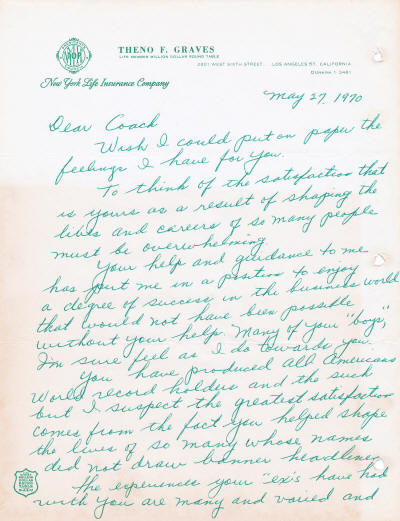 THENO F. GRAVES
LIFE MEMBER MILLION DOLLAR ROUND TABLE
2801 WEST SIXTH STREET LOS ANGELES 57, CALIFORNIA
DUNKIRK 1-3461
New York Life Insurance Company
May 27, 1970
Dear Coach
Wish I could put on paper the
feelings I have for you.
To think of the satisfaction that
is yours as a result of shaping the
lives and careers of so many people
must be overwhelming.
Your help and guidance to me
has put me in a position to enjoy
a degree of success in the business world
that would not have been possible
without your help. Many of your "boys",
I'm sure feel as I do towards you.
You have produced All Americans
World record holders and the such
but I suspect the greatest satisfaction
comes from the fact you helped shape
the lives of so many whose names
did not draw banner headlines
The experiences your "ex's have had
with you are many and varied and